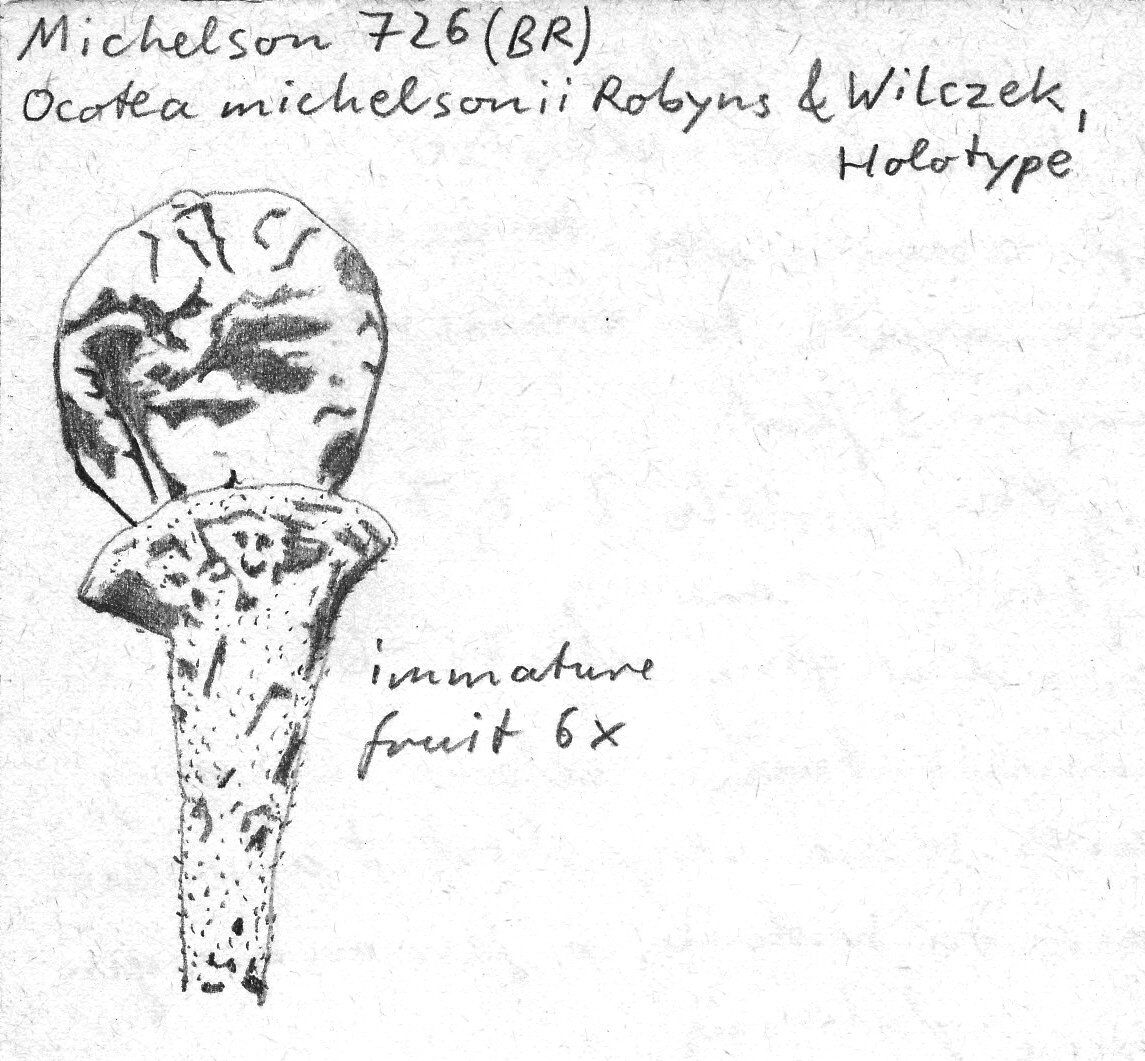 Michelson 726 (BR)
Ocotea michelsonii Robyns & Wilczek,
Holotype
immature
fruit 6x